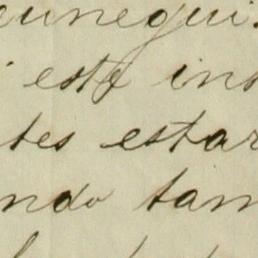 eunegui.
este ins
tes estar
ndo tam